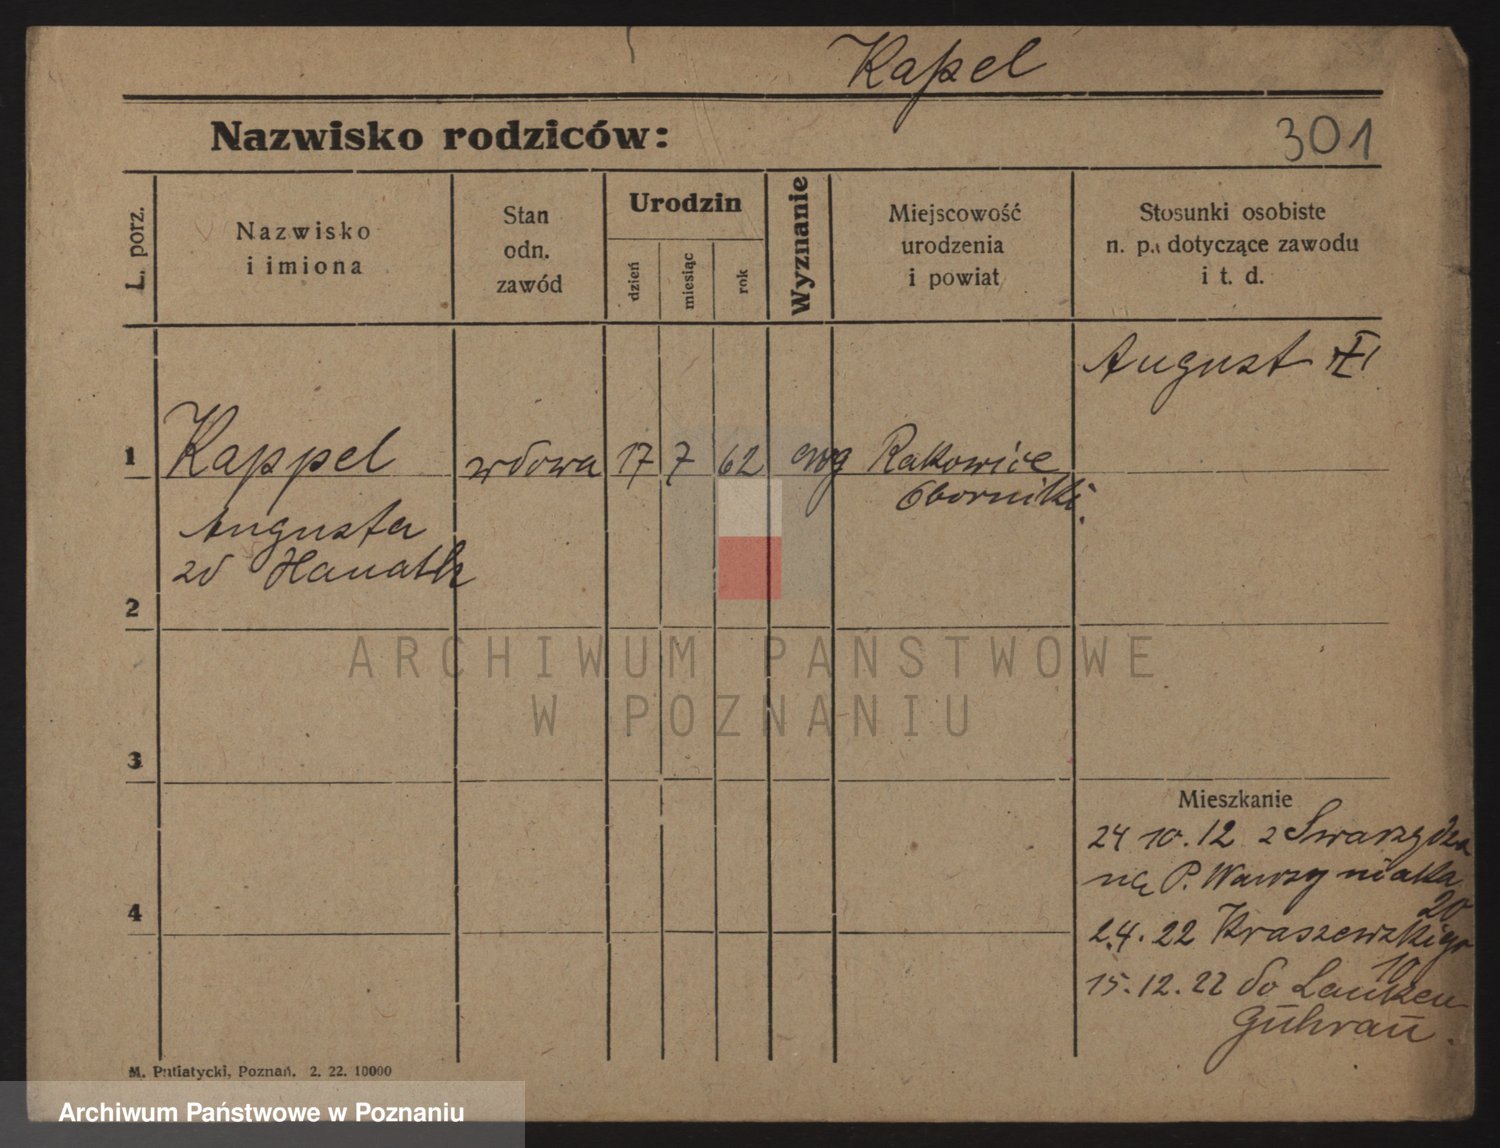 Kapel
Nazwisko rodziców:
301
L. porz.
Nazwisko
i imiona
Stan
odn.
zawód
Urodzin
dzień
miesiąc
rok
Wyznanie
Miejscowość
urodzenia
i powiat
Stosunki osobiste
n. p. dotyczące zawodu
i t. d.
August
1
Kappel
wdowa
17
7
62
ewg
Rakowice
Oborniki.
Augusta
zd
2
3
Mieszkanie
24 10. 12 z Swarzędza
P. Wawrzyniaka
20
4
2.4. 22 Kraszewskiego
10
15. 12. 22 do Lanken
Guhrau.
M. Putiatycki, Poznań. 2. 22. 10000
ARCHIWUM PAŃSTWOWE
W POZNANIU
Archiwum Państwowe w Poznaniu